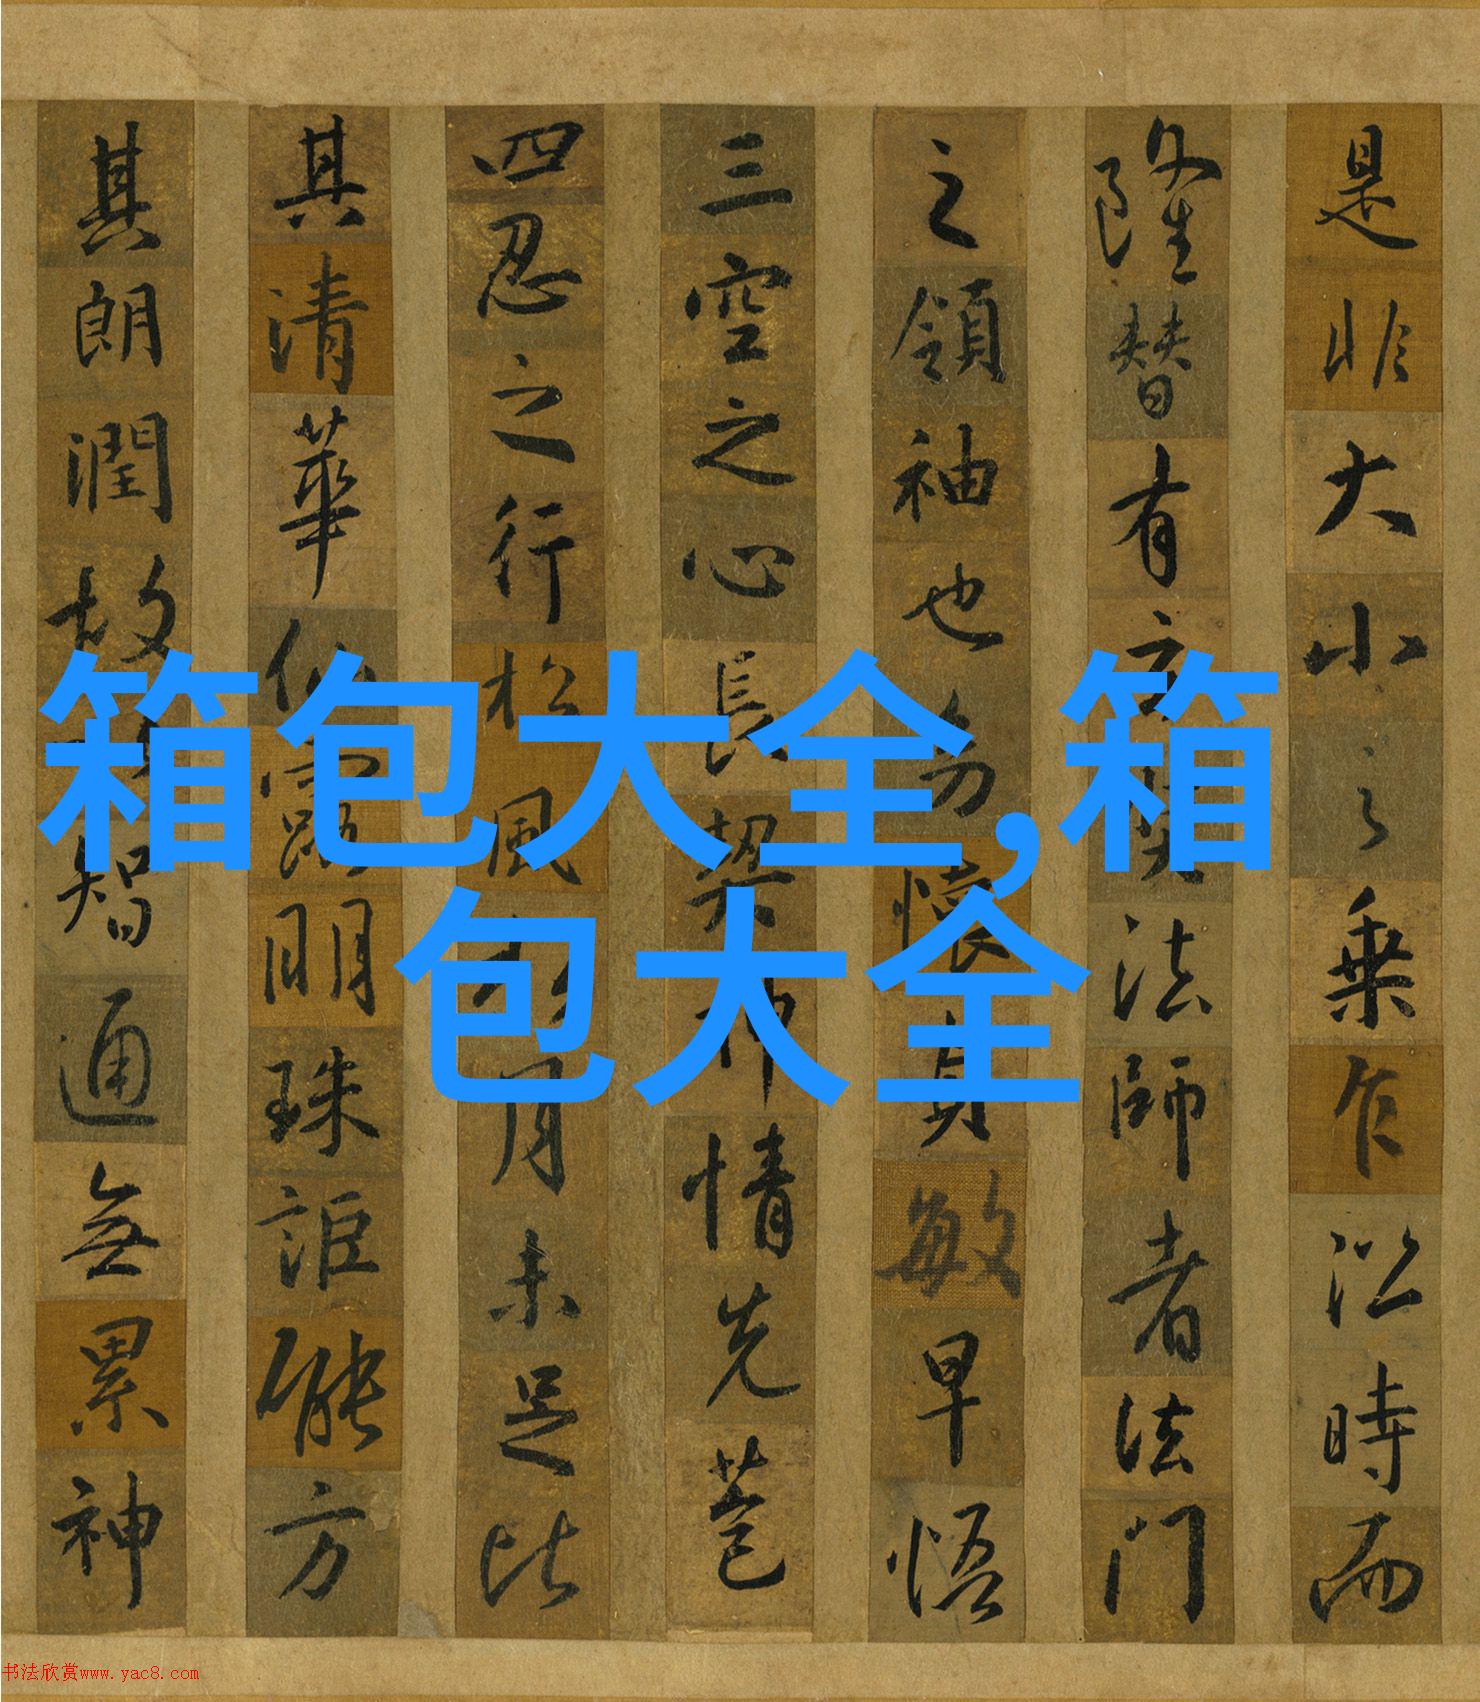 是非大小之乘乍沿時而
隆替有玄奘法師者法門
之領袖也幼懷貞敏早悟
三空之心長契神情先苞
四忍之行松風水月未足比
其清華仙露明珠詎能方
其朗潤故以智通無累神
箱包大全,箱
包大全
书法欣赏www.yac8.com